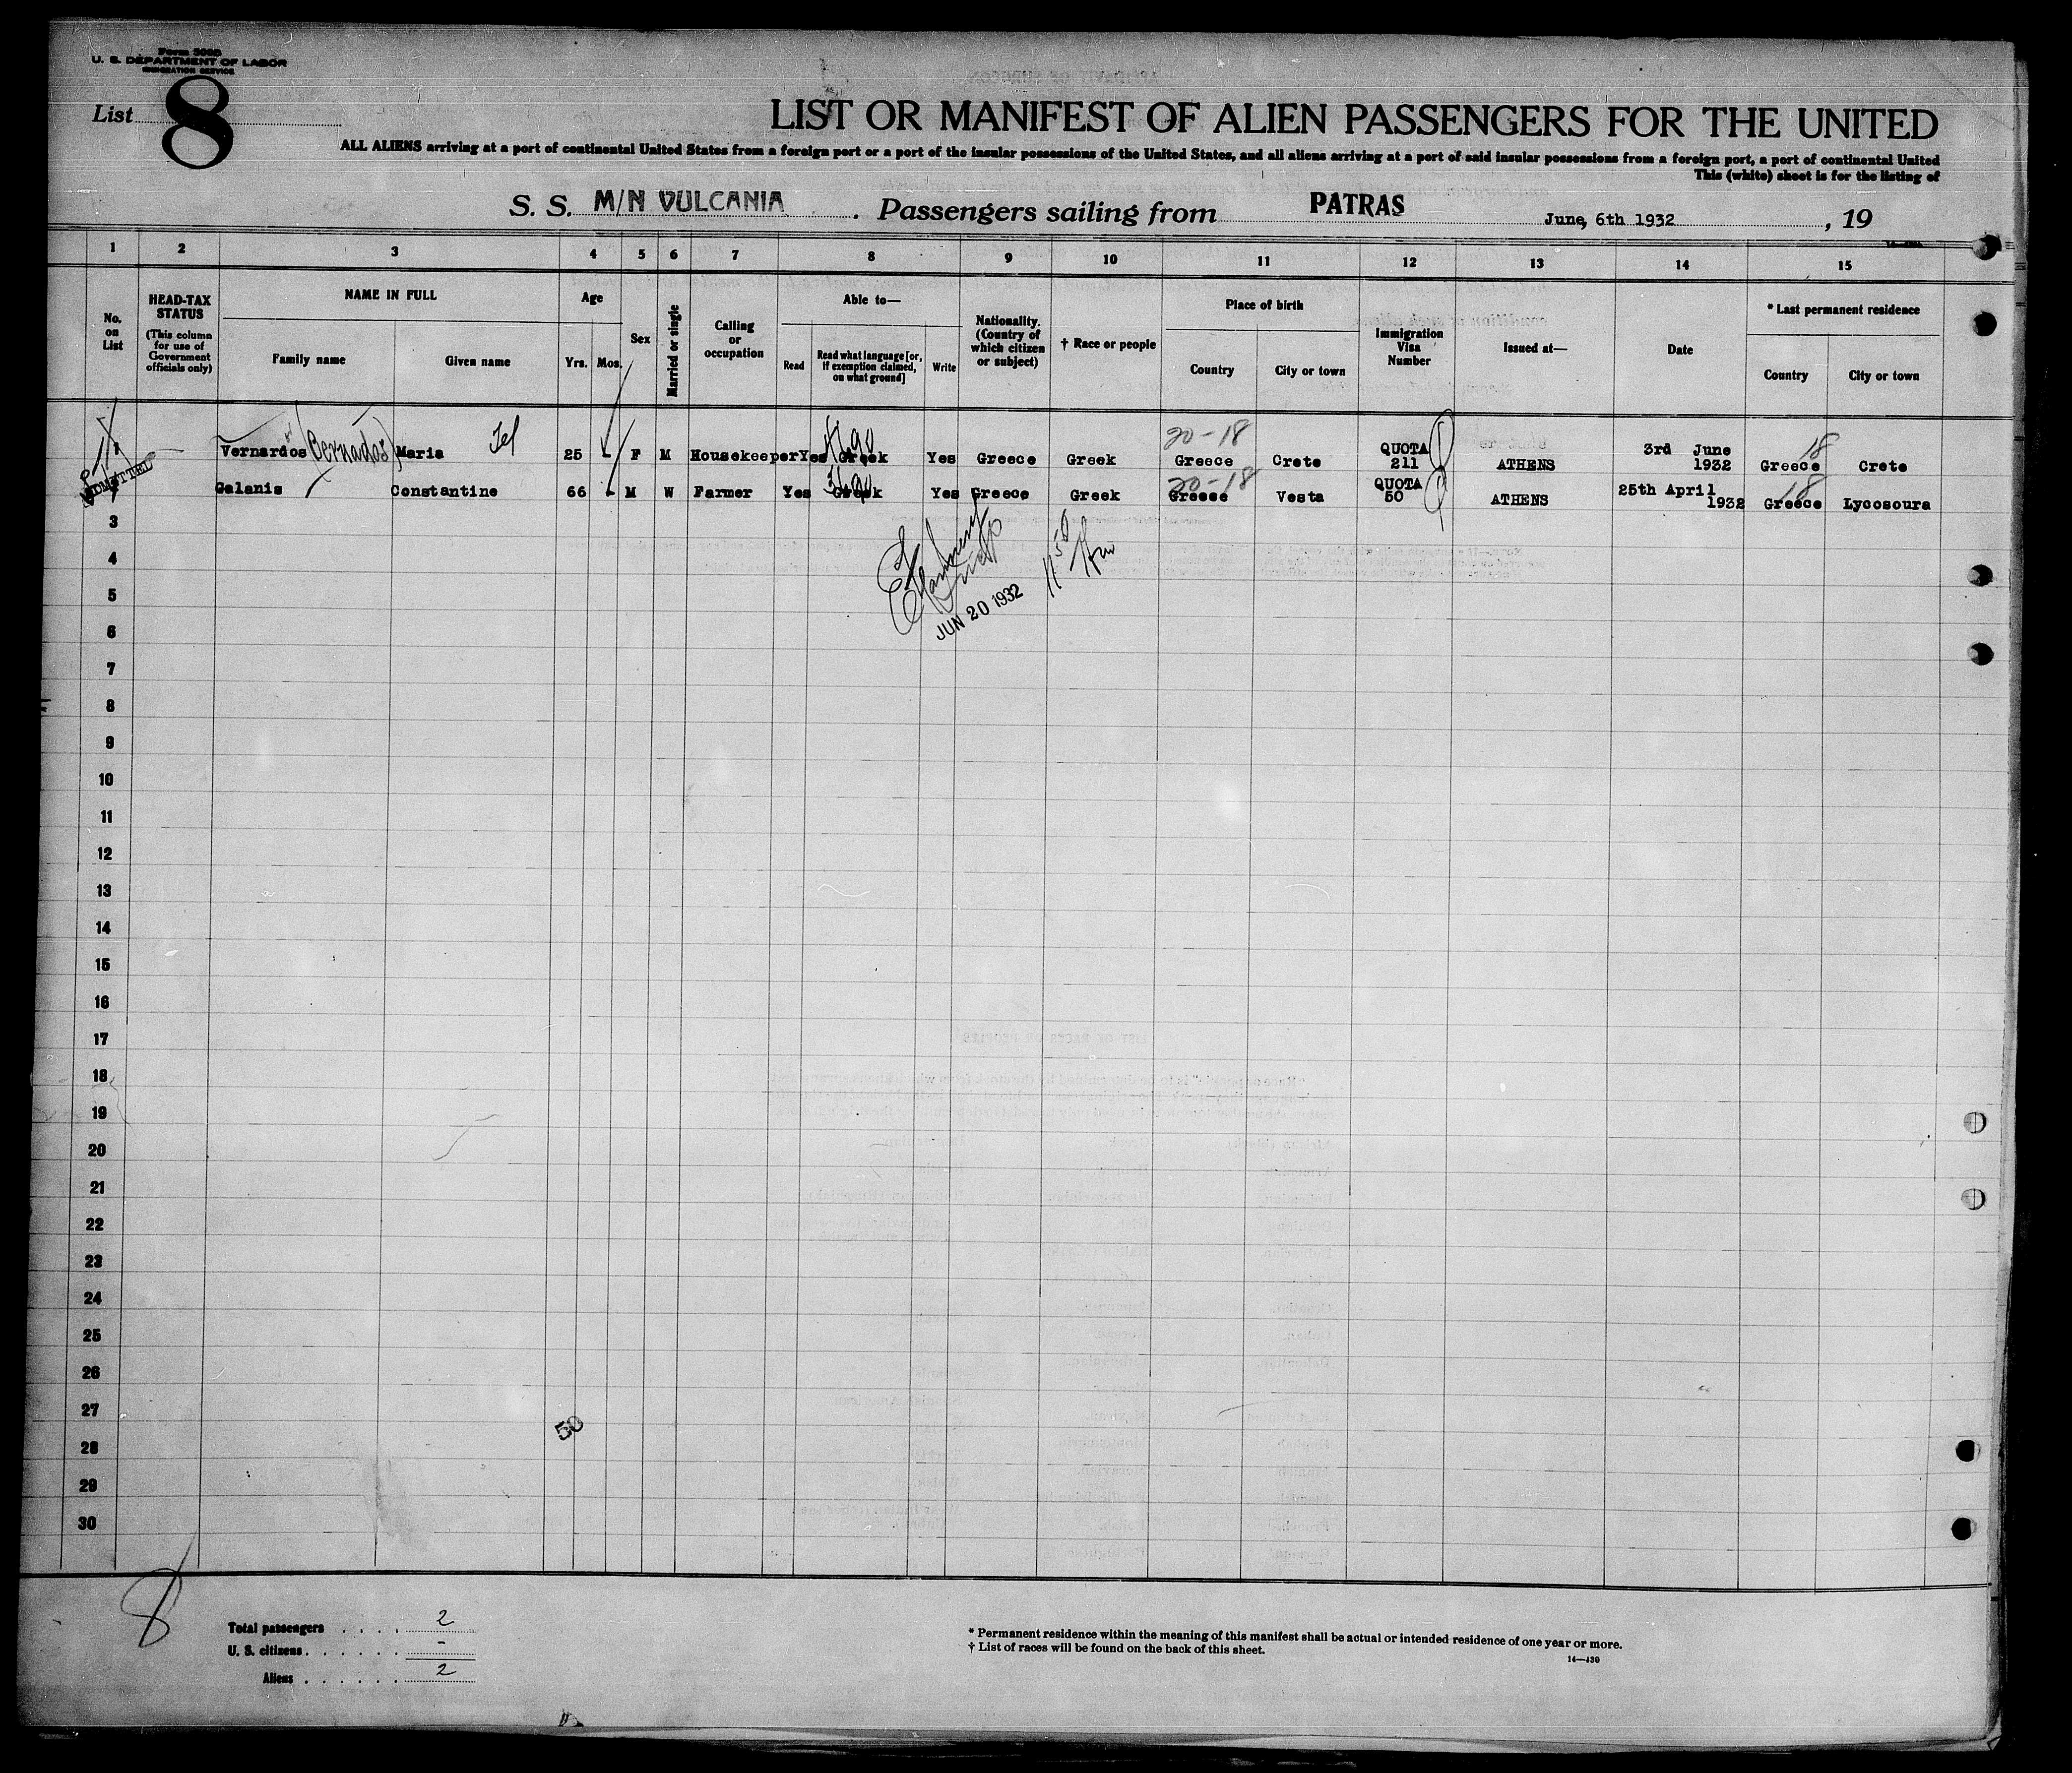 Form 500B
U. S. DEPARTMENT OF LABOR
IMMIGRATION SERVICE
List 8
LIST OR MANIFEST OF ALIEN PASSENGERS FOR THE UNITED
ALL ALIENS arriving at a port of continental United States from a foreign port or a port of the insular possessions of the United States, and all aliens arriving at a port of said insular possessions from a foreign port, a port of continental United
This (white) sheet is for the listing of
S. S. M/N VULCANIA. Passengers sailing from PATRAS June, 6th 1932, 19
1 2 3 4 5 6 7 8 9 10 11 12 13 14 15
No. on List
HEAD-TAX STATUS
(This column for use of Government officials only)
NAME IN FULL
Family name
Given name
Age
Yrs.
Mos.
Sex
Married or single
Calling or occupation
Able to—
Read
Read what language [or, if exemption claimed, on what ground]
Write
Nationality. (Country of which citizen or subject)
† Race or people
Place of birth
Country
City or town
Immigration Visa Number
Issued at—
Date
* Last permanent residence
Country
City or town
20-18 18
Vernardos (Bernados) Maria 25 - F M Housekeeper Yes Greek Yes Greece Greek Greece Crete QUOTA 211 ATHENS 3rd June 1932 Greece Crete
ADMITTED
20-18 18
Galanis Constantine 66 - M W Farmer Yes Greek Yes Greece Greek Greece Vesta QUOTA 50 ATHENS 25th April 1932 Greece Lycosoura
3
4
5
JUN 20 1932
6
7
8
9
10
11
12
13
14
15
16
17
18
19
20
21
22
23
24
25
26
27
50
28
29
30
8
Total passengers . . . . 2
U. S. citizens . . . . . . -
Aliens . . . . . . 2
* Permanent residence within the meaning of this manifest shall be actual or intended residence of one year or more.
† List of races will be found on the back of this sheet.
14—430